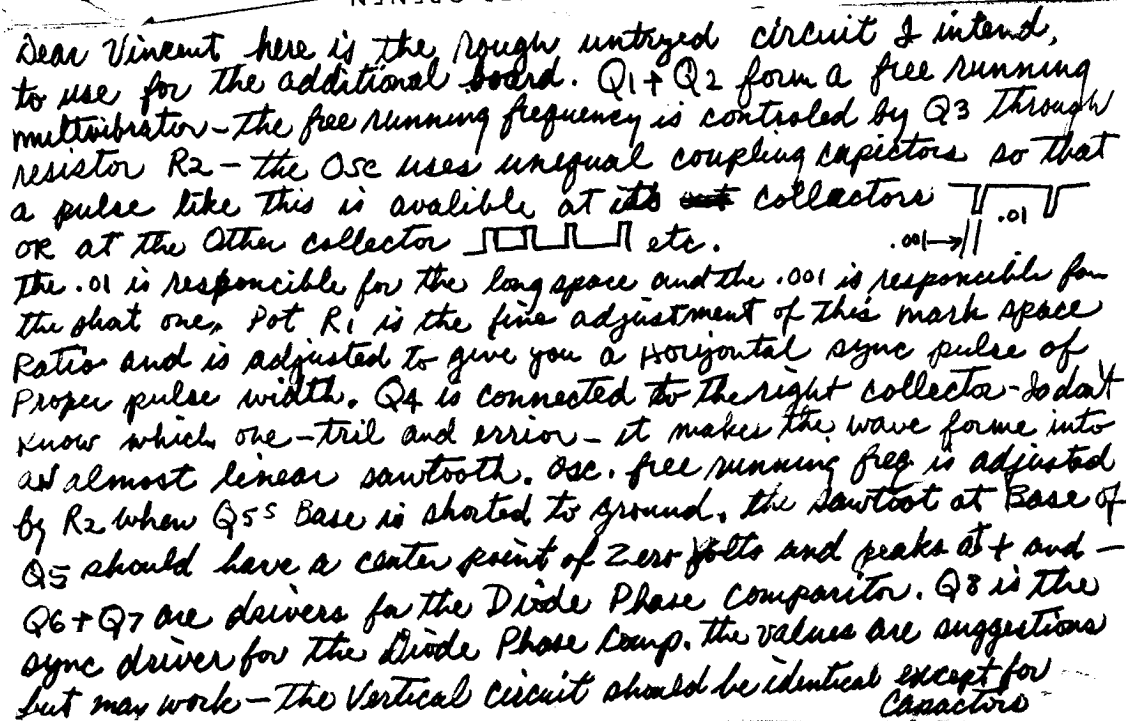 Dear Vincent here is the rough untryed circuit I intend,
to use for the additional board. Q1 + Q2 form a free running
multivibrator - the free running frequency is controled by Q3 through
resistor R2 - the Osc uses unequal coupling capictors so that
a pulse like this is avalible at its collectors
OR at the Other collector etc.
.01
.001→
the .01 is responcible for the long space and the .001 is responcible for
the shot one. Pot R1 is the fine adjustment of this mark space
Ratio and is adjusted to give you a Horizontal sync pulse of
Proper pulse width. Q4 is connected to the right collector - I don't
know which one - tril and errior - it makes the wave forme into
an almost linear sawtooth. Osc. free running freq is adjusted
by R2 when Q5s Base is shorted to ground. the sawtoot at Base of
Q5 should have a center point of Zero volts and peaks at + and -
Q6 + Q7 are drivers for the Diode Phase comparitor. Q8 is the
sync driver for the Diode Phase Comp. the values are suggestions
but may work - the Vertical circuit should be identical except for
Capactors